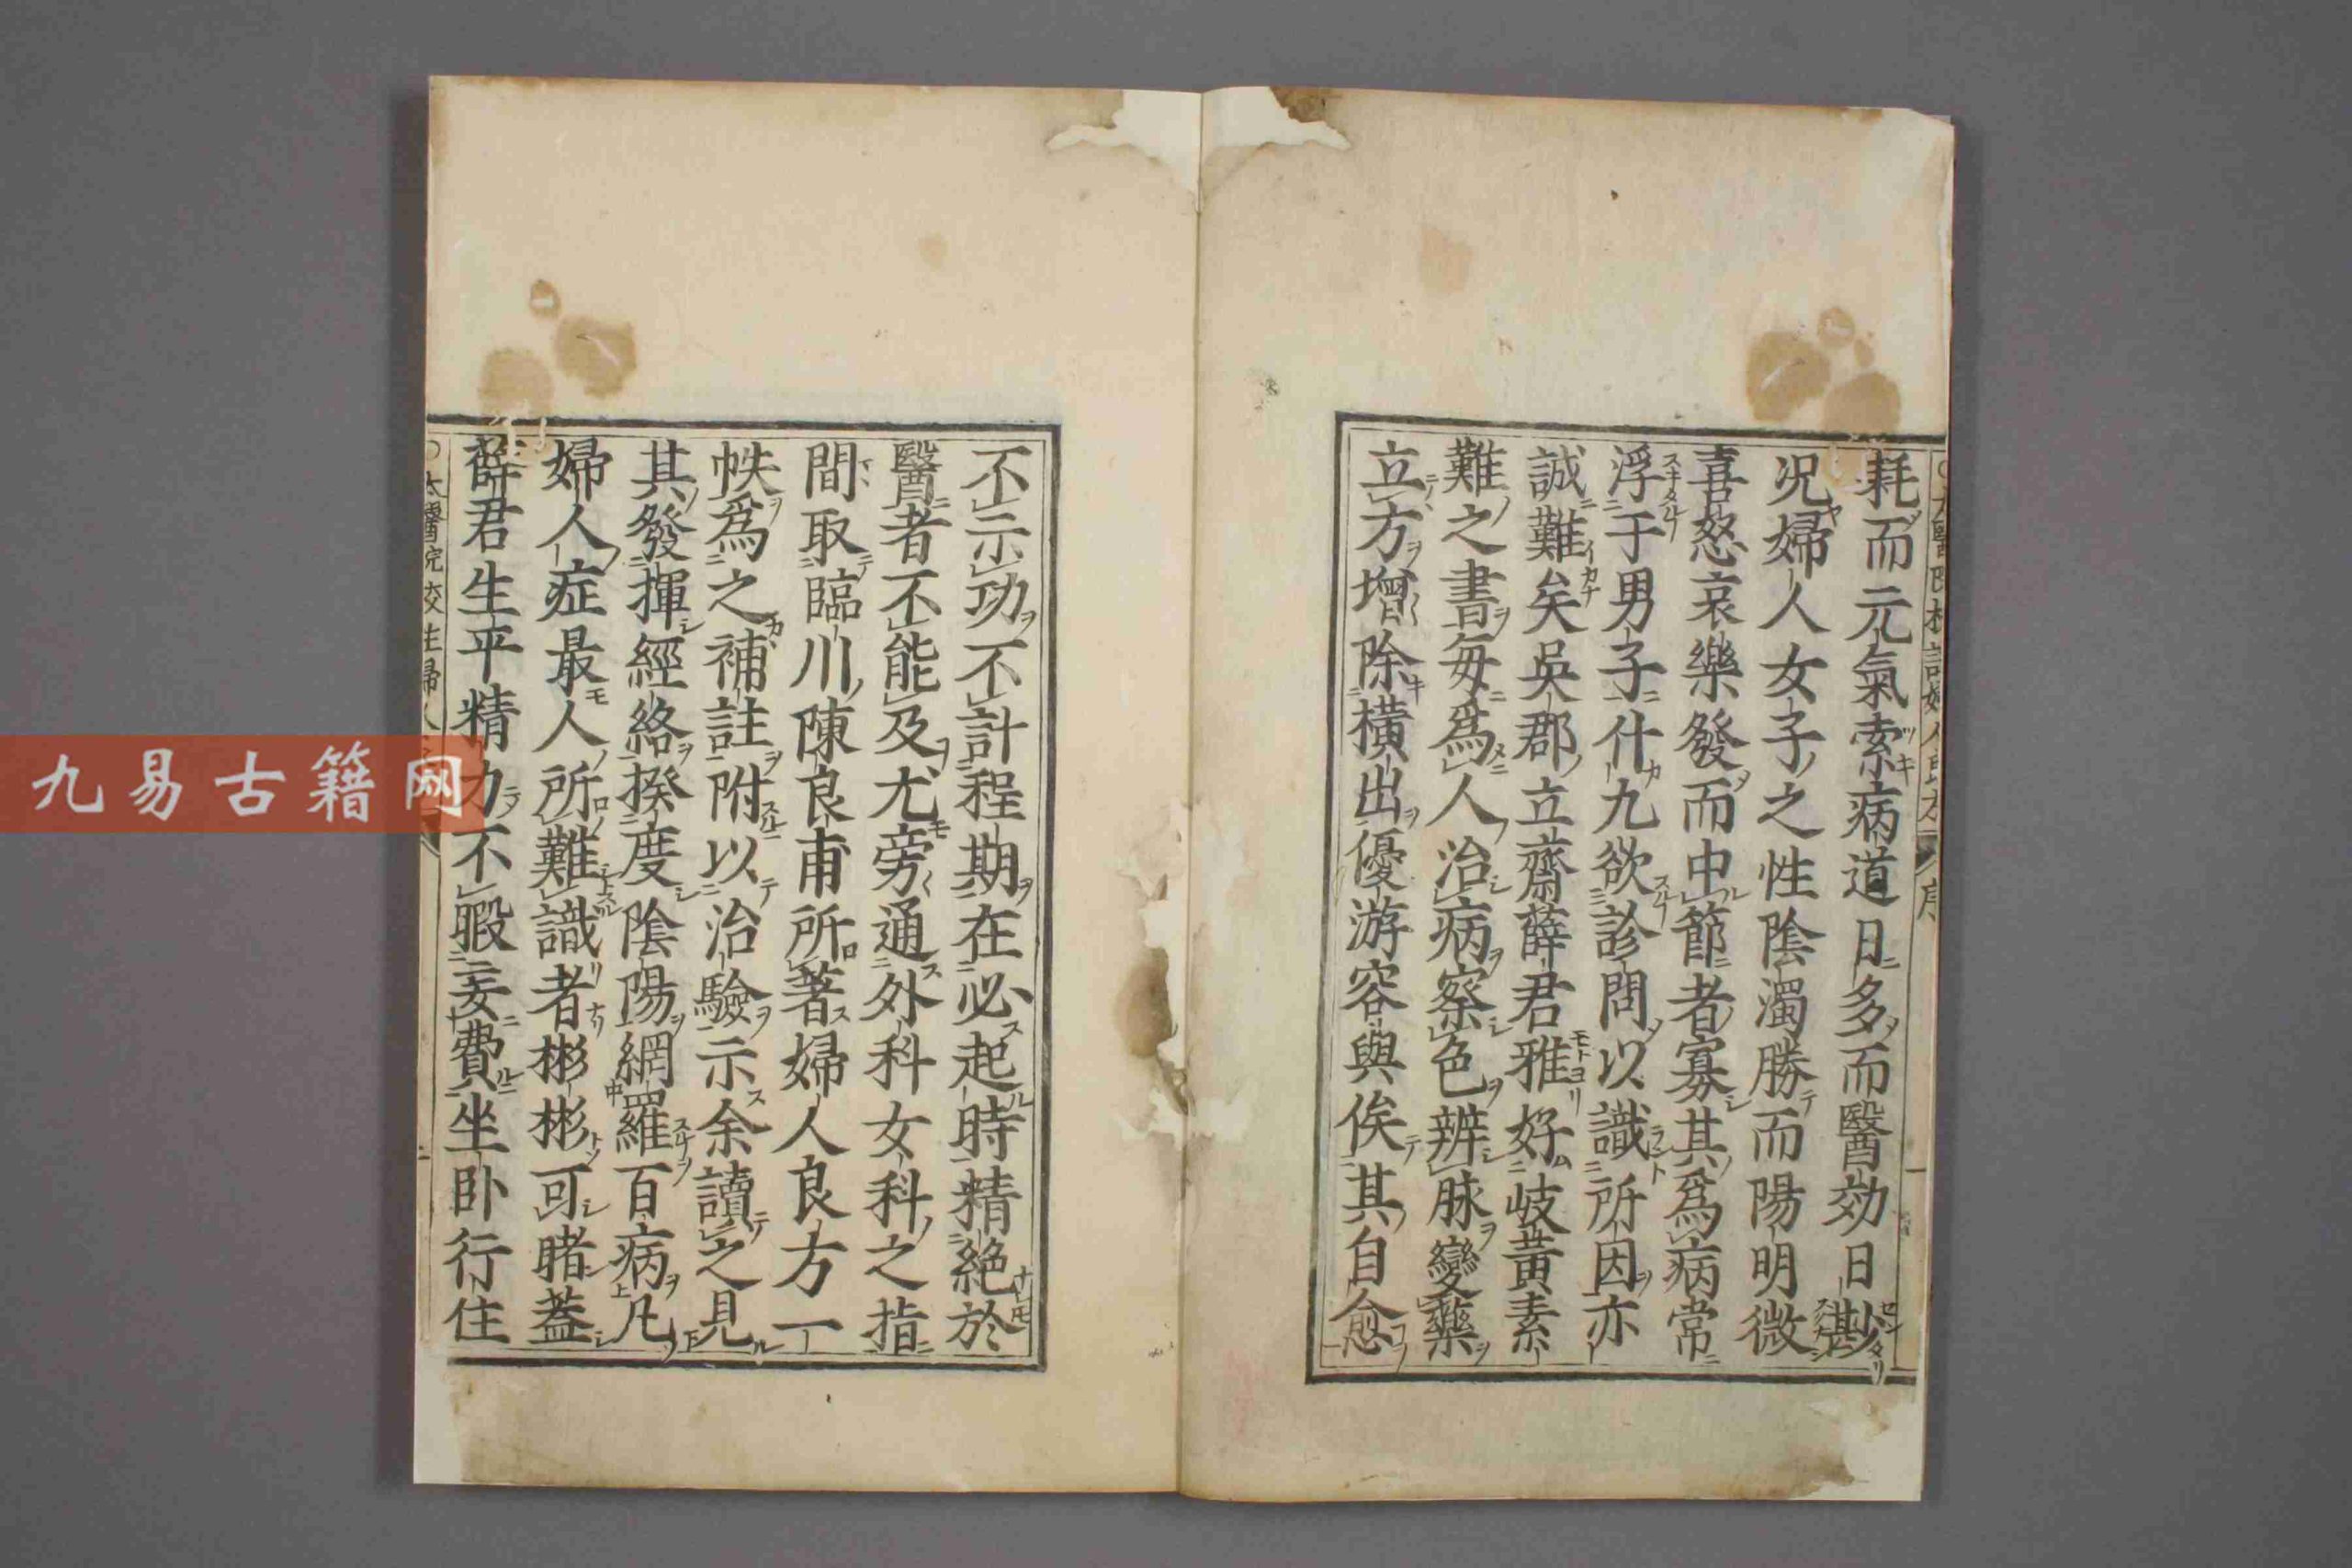 耗而元氣索病道日多而醫効日尠
况婦人女子之性陰濁勝而陽明微
喜怒哀樂發而中節者寡其爲病常
浮于男子什九欲診問以識所因亦
誠難矣吳郡立齋薛君雅好岐黃素
難之書每爲人治病察色辨脉變藥
立方增除橫出優游容與俟其自愈
不示功不計程期在必起時精絶於
醫者不能及尤旁通外科女科之指
間取臨川陳良甫所著婦人良方一
帙爲之補註附以治驗示余讀之見
其發揮經絡揆度陰陽網羅百病凡
婦人症最人所難識者彬彬可睹蓋
薛君生平精力不暇妄費坐卧行住
太醫院校註婦人
九易古籍网